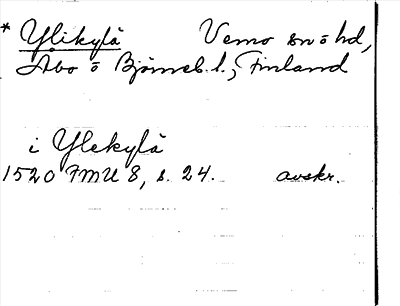 * Ylikylä Vemo sn o hd,
Åbo o Björneb. l., Finland
i Ylekylä
1520 FMU 8, s. 24. avskr.